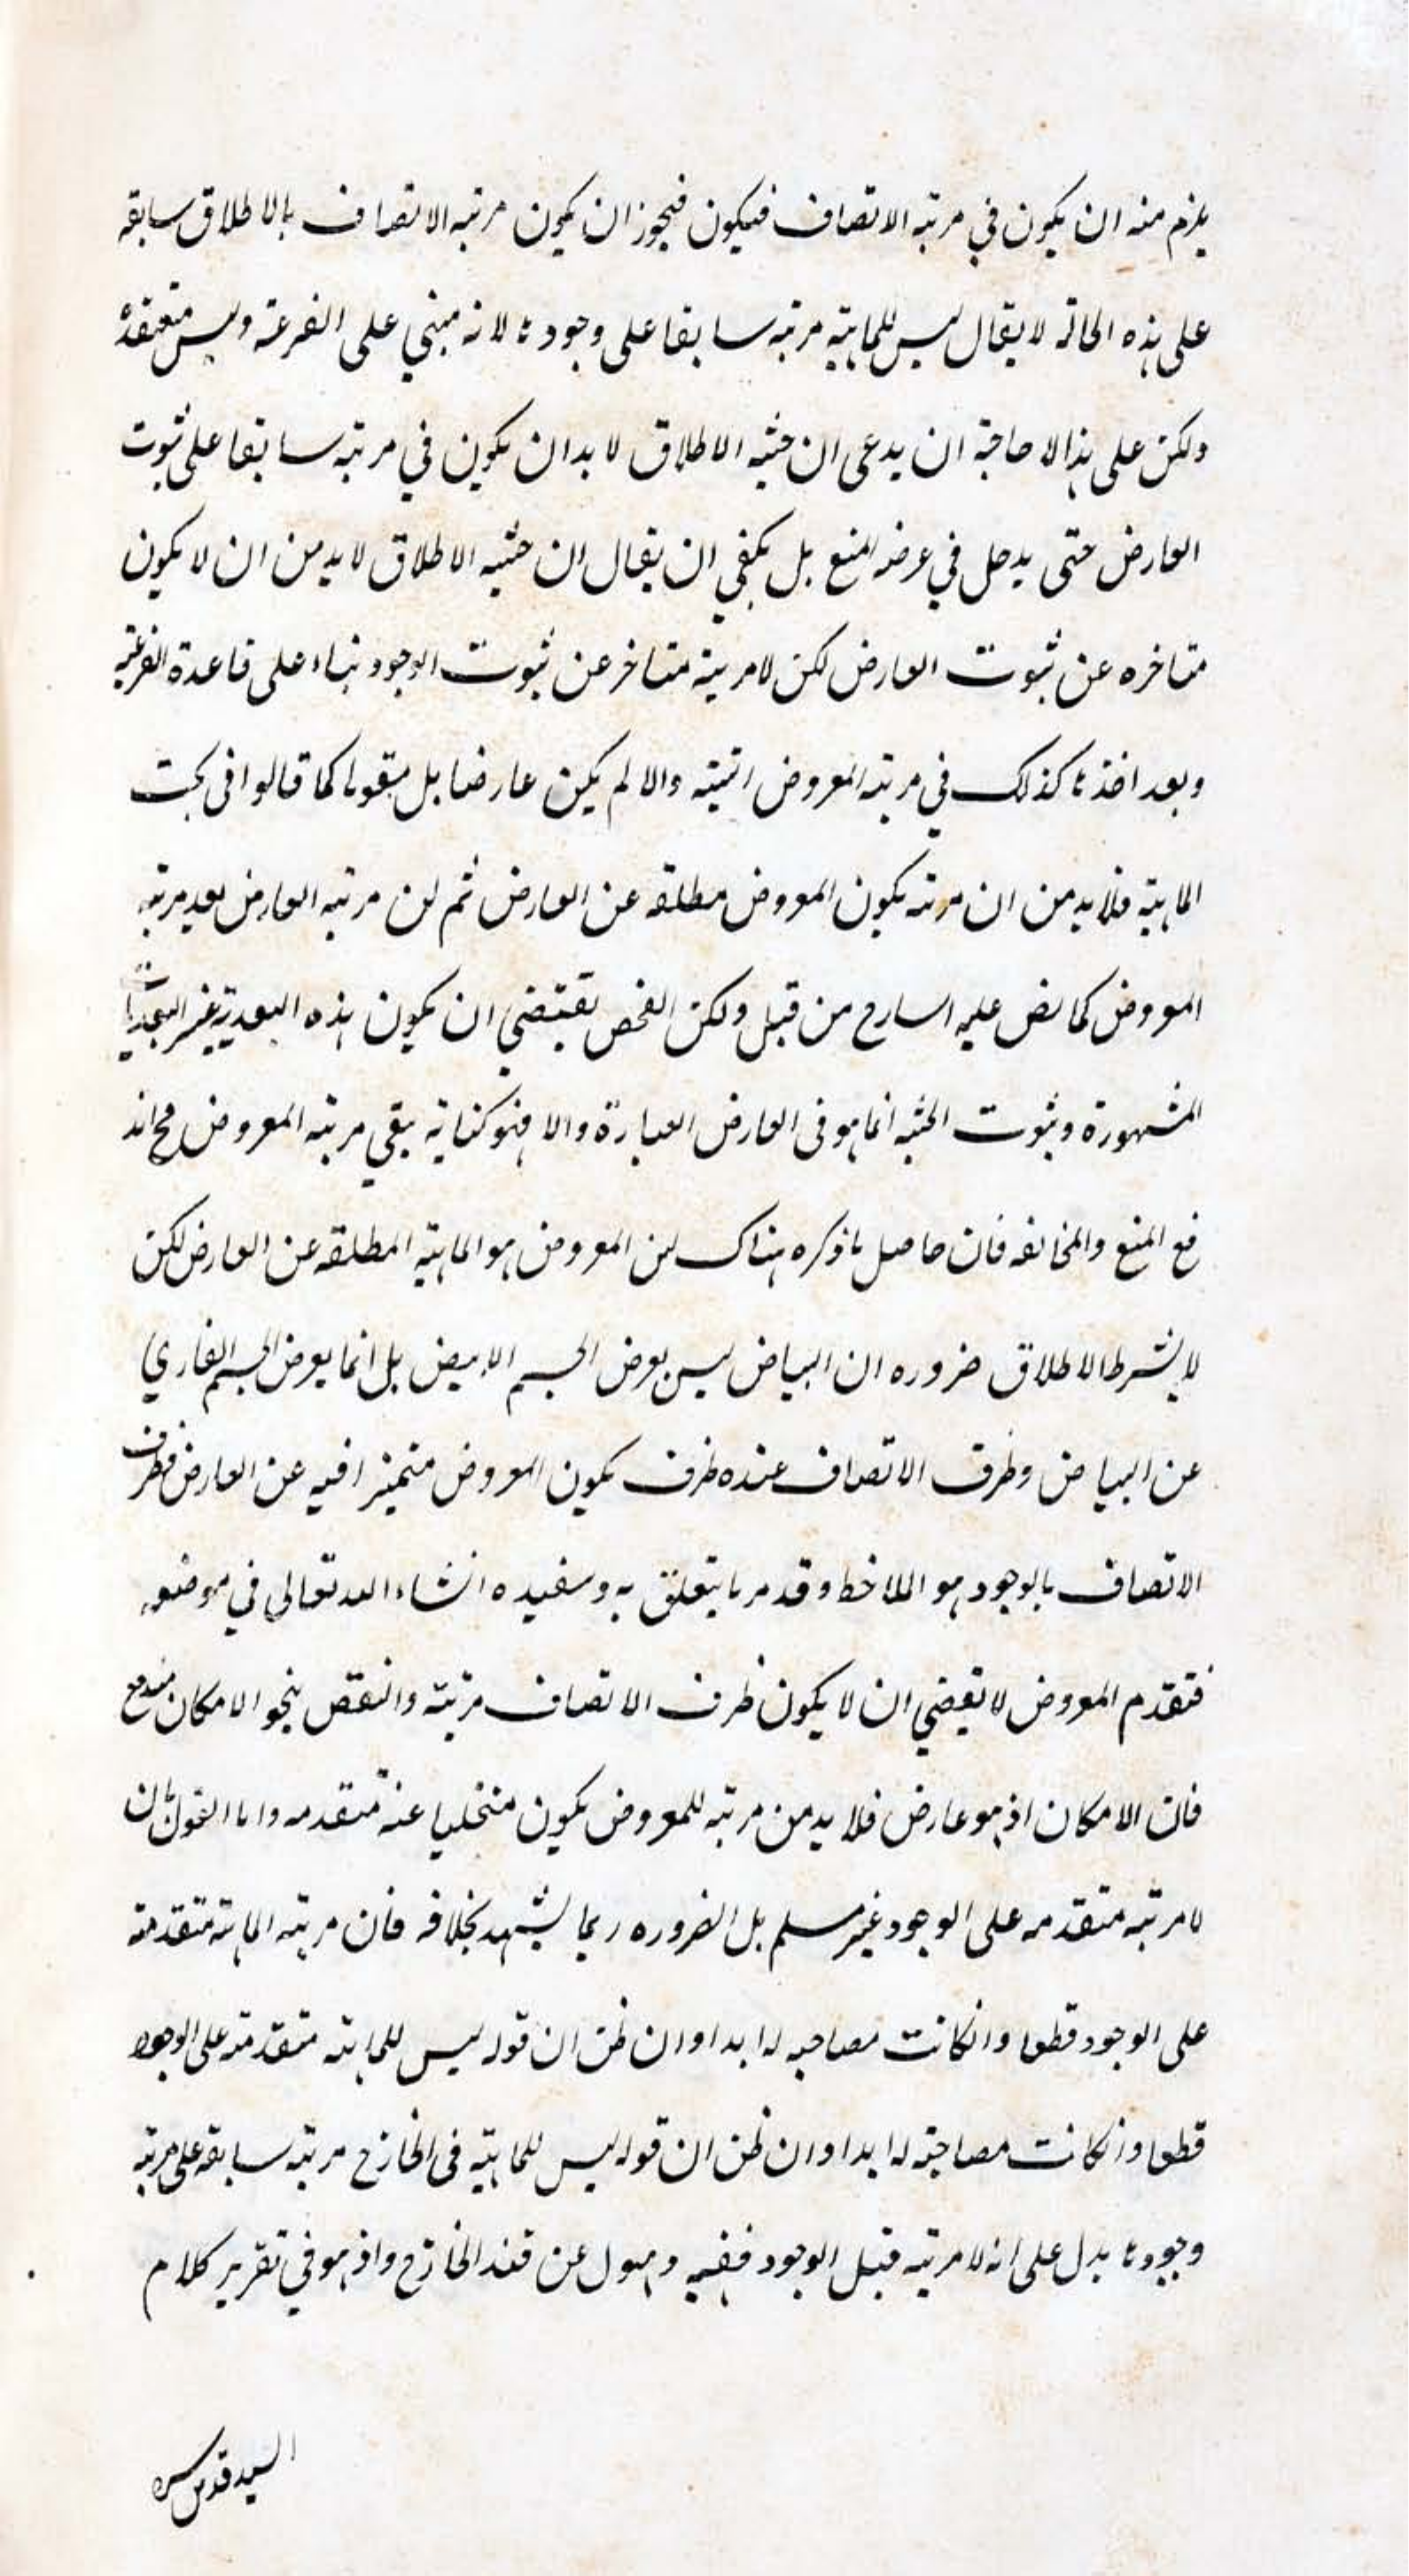 يلزم منه ان يكون في مرتبه الاتصاف فيكون فيجوز ان يكون مرتبه الاتصاف بالاطلاق سابقه
على هذه الحالة لا يقال ليس للماهيته مرتبه سابقا على وجودها لانه مبني على الفرعية وليس معتقدة
ولكن على هذا لا حاجة ان يدعى ان حثيه الاطلاق لا بد ان يكون في مرتبه سابقا على ثبوت
العارض حتى يدخل في عرضه المنع بل يكفي ان يقال ان حثيه الاطلاق لا بد من ان لا يكون
متاخره عن ثبوت العارض لكن لا مرية متاخر عن ثبوت الوجود بناء على قاعدة الفرعيه
وبعد اخذها كذلك في مرتبه المعروض اتيته والا لم يكن عارضا بل مقوما كما قالوا فى بحث
الماهيته فلا بد من ان مرتبه يكون المعروض مطلقه عن العارض ثم ان مرتبه العارض بعد مرتبه
المعروض كما نص عليه الشارح من قبل ولكن الفحص يقتضي ان يكون هذه البعدية غير البعديات
المشهورة وثبوت الحثيه انما هو فى العارض العبارة والا فهو كناية بقي مرتبه المعروض فح اند
فع المنع والمخالفه فان حاصل ما ذكره هناك ان المعروض هو الماهيته المطلقه عن العارض لكن
لا بشرط الاطلاق ضروره ان البياض ليس يعرض الجسم الابيض بل انما يعرض الجسم العاري
عن البياض وظرف الاتصاف عنده ظرف يكون المعروض متميزا فيه عن العارض فظرف
الاتصاف بالوجود هو الملاحظ وقد مر ما يتعلق به وسنعيده انشاء الله تعالى في موضعه
فتقدم المعروض لا يقتضي ان لا يكون ظرف الاتصاف مرتبته والنقض بنحو الامكان مندفع
فان الامكان اذ هو عارض فلا بد من مرتبه للمعروض يكون متخليا عنه متقدمه واما القول بان
لا مرتبه متقدمه على الوجود غير مسلم بل الضروره ربما يشهد بخلافه فان مرتبه الماهيته متقدمة
على الوجود قطعا وانكانت مصاحبه له ابدا وان ظن ان قوله ليس للماهيته متقدمة على الوجود
قطعا وانكانت مصاحبته له ابدا وان ظن ان قوله ليس للماهيته فى الخارج مرتبه سابقه على مرتبه
وجودها يدل على انه لا مرتبه قبل الوجود ففيه ذهول عن قيد الخارج واذ هو في تقرير كلام
السيد قدس سره